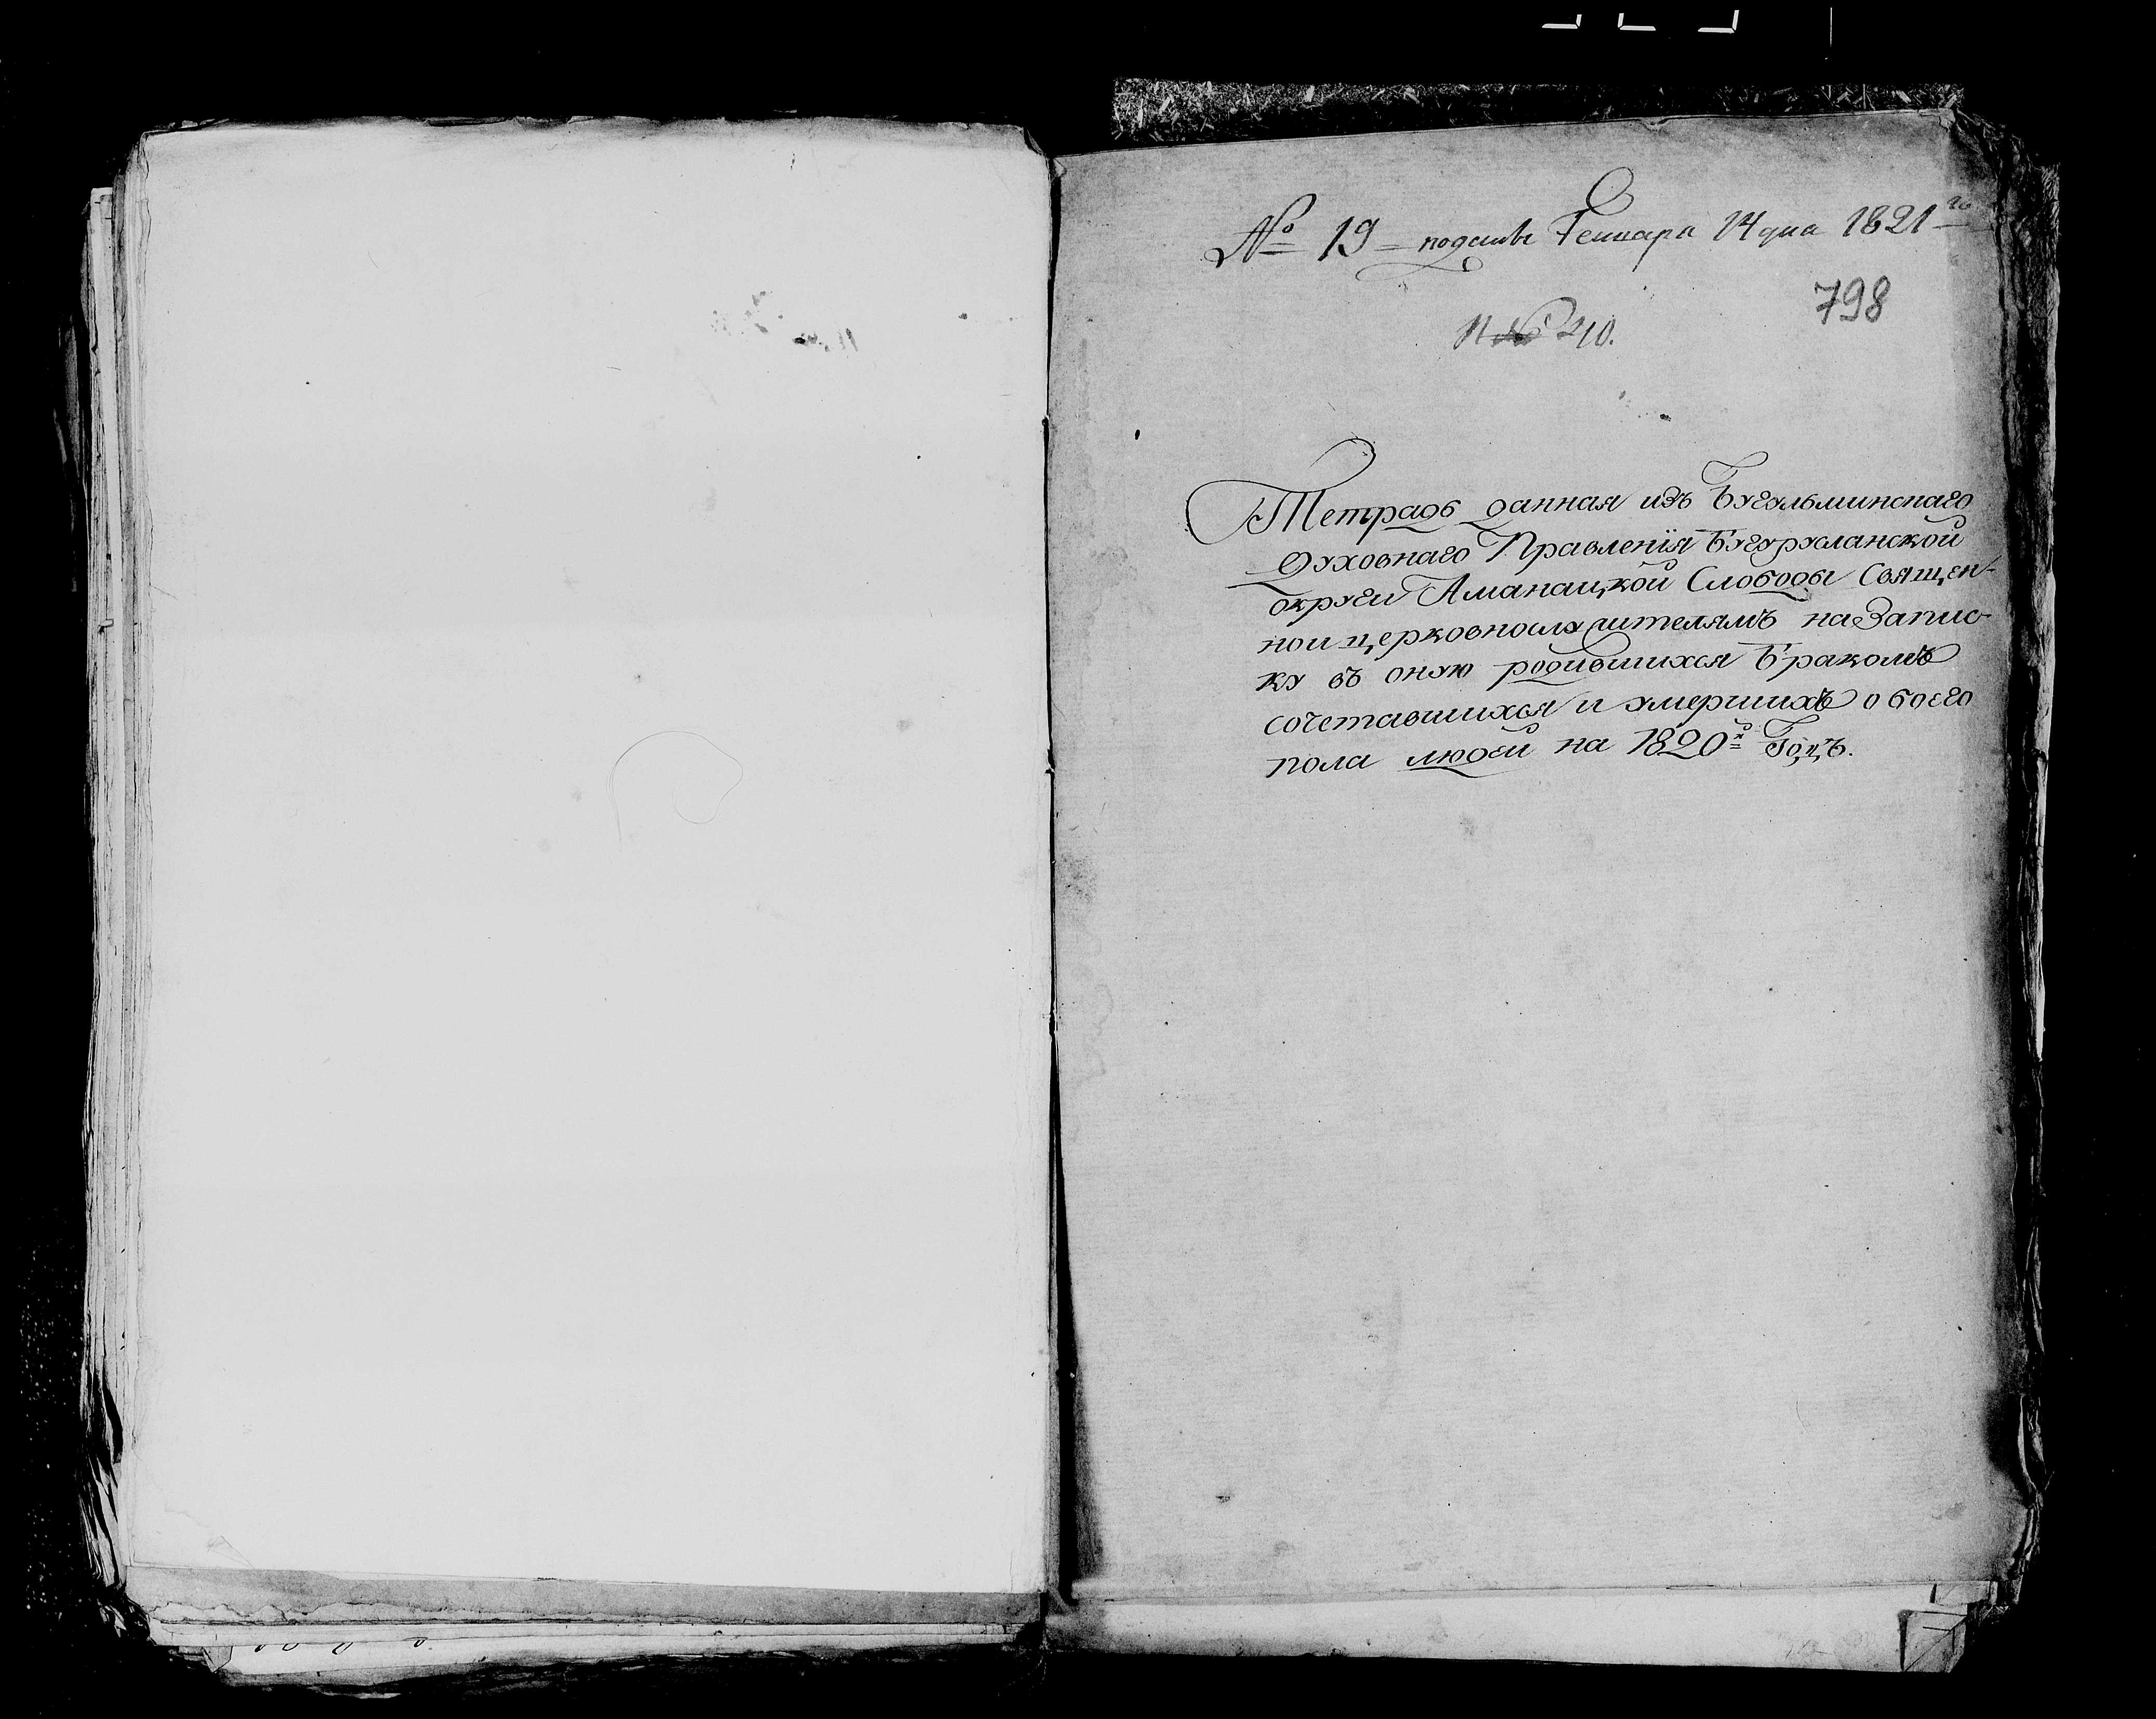 № 19 подана Генваря 14 дня 1821го
798
№ 210.
Тетрадь данная изъ Бугульминскаго
Духовнаго Правленія Бугурусланской
округи Аманацкой Слободы Священ-
но и церковнослужителямъ на Запис-
ку въ оную родившихся Бракомъ
сочетавшихся и умершихъ обоего
пола людей на 1820й Годъ.